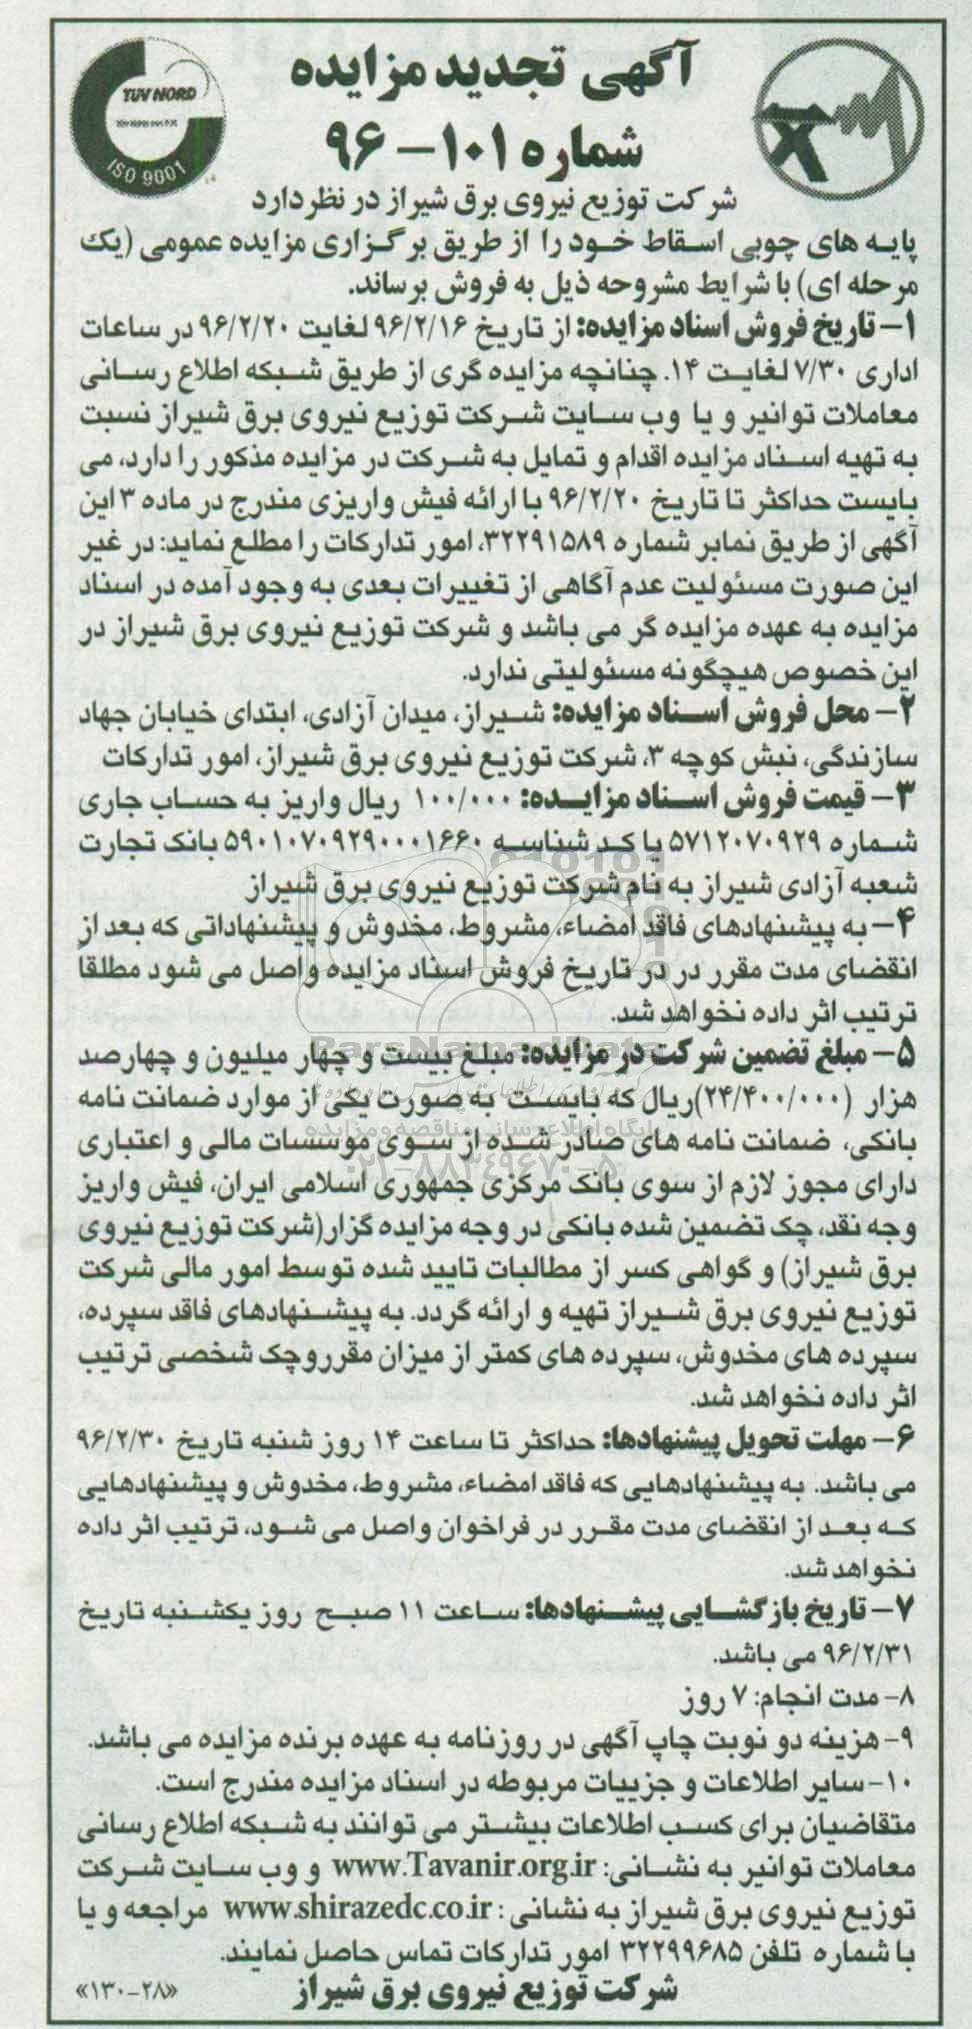 آگهی تجدید مزایده
شماره ۱۰۱ - ۹۶
TUV NORD
ISO 9001
شرکت توزیع نیروی برق شیراز در نظر دارد
پایه های چوبی اسقاط خود را از طریق برگزاری مزایده عمومی (یک
مرحله ای) با شرایط مشروحه ذیل به فروش برساند.
۱- تاریخ فروش اسناد مزایده: از تاریخ ۹۶/۲/۱۶ لغایت ۹۶/۲/۲۰ در ساعات
اداری ۷/۳۰ لغایت ۱۴. چنانچه مزایده گری از طریق شبکه اطلاع رسانی
معاملات توانیر و یا وب سایت شرکت توزیع نیروی برق شیراز نسبت
به تهیه اسناد مزایده اقدام و تمایل به شرکت در مزایده مذکور را دارد، می
بایست حداکثر تا تاریخ ۹۶/۲/۲۰ با ارائه فیش واریزی مندرج در ماده ۳ این
آگهی از طریق نمابر شماره ۳۲۲۹۱۵۸۹، امور تدارکات را مطلع نماید: در غیر
این صورت مسئولیت عدم آگاهی از تغییرات بعدی به وجود آمده در اسناد
مزایده به عهده مزایده گر می باشد و شرکت توزیع نیروی برق شیراز در
این خصوص هیچگونه مسئولیتی ندارد.
۲- محل فروش اسناد مزایده: شیراز، میدان آزادی، ابتدای خیابان جهاد
سازندگی، نبش کوچه ۳، شرکت توزیع نیروی برق شیراز، امور تدارکات
۳- قیمت فروش اسناد مزایده: ۱۰۰/۰۰۰ ریال واریز به حساب جاری
شماره ۵۷۱۲۰۷۰۹۲۹ با کد شناسه ۵۹۰۱۰۷۰۹۲۹۰۰۰۱۶۶۰ بانک تجارت
شعبه آزادی شیراز به نام شرکت توزیع نیروی برق شیراز
۴- به پیشنهادهای فاقد امضاء، مشروط، مخدوش و پیشنهاداتی که بعد از
انقضای مدت مقرر در در تاریخ فروش اسناد مزایده واصل می شود مطلقا
ترتیب اثر داده نخواهد شد.
ParsNamadData
۵- مبلغ تضمین شرکت در مزایده: مبلغ بیست و چهار میلیون و چهارصد
هزار (۲۴/۴۰۰/۰۰۰)ریال که بایست به صورت یکی از موارد ضمانت نامه
پایگاه اطلاع رسانی مناقصه و مزایده
بانکی، ضمانت نامه های صادر شده از سوی موسسات مالی و اعتباری
۰۲۱-۸۸۳۴۹۶۷۰-۵
دارای مجوز لازم از سوی بانک مرکزی جمهوری اسلامی ایران، فیش واریز
وجه نقد، چک تضمین شده بانکی در وجه مزایده گزار(شرکت توزیع نیروی
برق شیراز) و گواهی کسر از مطالبات تایید شده توسط امور مالی شرکت
توزیع نیروی برق شیراز تهیه و ارائه گردد. به پیشنهادهای فاقد سپرده،
سپرده های مخدوش، سپرده های کمتر از میزان مقرروچک شخصی ترتیب
اثر داده نخواهد شد.
۶- مهلت تحویل پیشنهادها: حداکثر تا ساعت ۱۴ روز شنبه تاریخ ۹۶/۲/۳۰
می باشد. به پیشنهادهایی که فاقد امضاء، مشروط، مخدوش و پیشنهادهایی
که بعد از انقضای مدت مقرر در فراخوان واصل می شود، ترتیب اثر داده
نخواهد شد.
۷- تاریخ بازگشایی پیشنهادها: ساعت ۱۱ صبح روز یکشنبه تاریخ
۹۶/۲/۳۱ می باشد.
۸- مدت انجام: ۷ روز
۹- هزینه دو نوبت چاپ آگهی در روزنامه به عهده برنده مزایده می باشد.
۱۰- سایر اطلاعات و جزییات مربوطه در اسناد مزایده مندرج است.
متقاضیان برای کسب اطلاعات بیشتر می توانند به شبکه اطلاع رسانی
معاملات توانیر به نشانی: www.Tavanir.org.ir و وب سایت شرکت
توزیع نیروی برق شیراز به نشانی : www.shirazedc.co.ir مراجعه و یا
با شماره تلفن ۳۲۲۹۹۶۸۵ امور تدارکات تماس حاصل نمایند.
شرکت توزیع نیروی برق شیراز
«۱۳۰-۲۸»